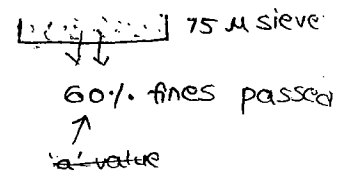 75 μ sieve
60% fines passed
'a' value